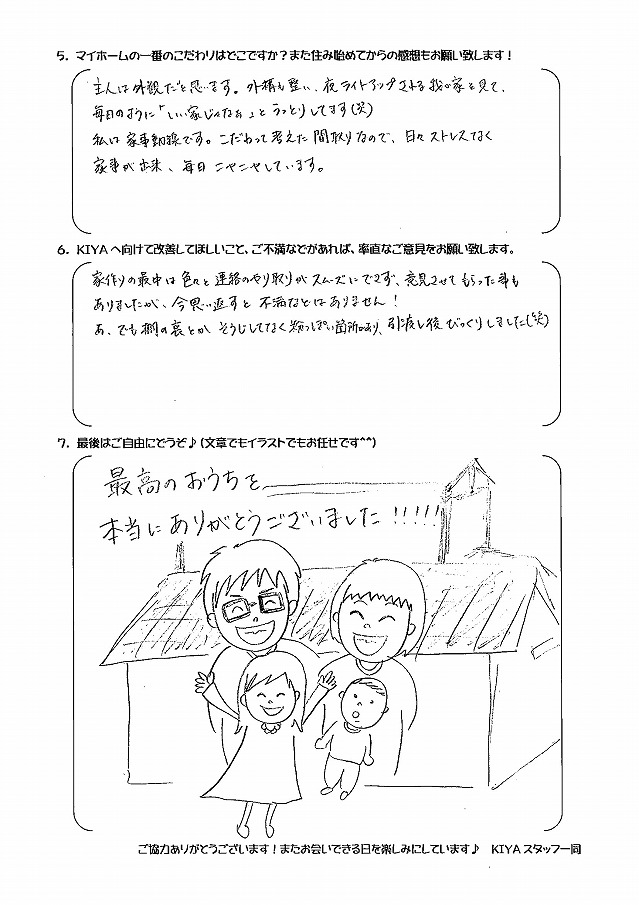 5. マイホームの一番のこだわりはどこですか？また住み始めてからの感想もお願い致します！
主人は外観だと思います。外構も整い、夜ライトアップされる我が家を見て、
毎日のように「いい家じゃなぁ」とうっとりしてます(笑)
私は家事動線です。こだわって考えた間取りなので、日々ストレスなく
家事が出来、毎日ニヤニヤしています。
6. KIYAへ向けて改善してほしいこと、ご不満などがあれば、率直なご意見をお願い致します。
家作りの最中は色々と連絡のやり取りがスムーズにできず、意見させてもらった事も
ありましたが、今思い返すと不満などはありません！
あ、でも棚の裏とかそうじしてなく粉っぽい箇所があり、引渡し後びっくりしました(笑)
7. 最後はご自由にどうぞ♪(文章でもイラストでもお任せです^^)
最高のおうちを
本当にありがとうございました!!!!!
ご協力ありがとうございます！またお会いできる日を楽しみにしています♪ KIYAスタッフ一同